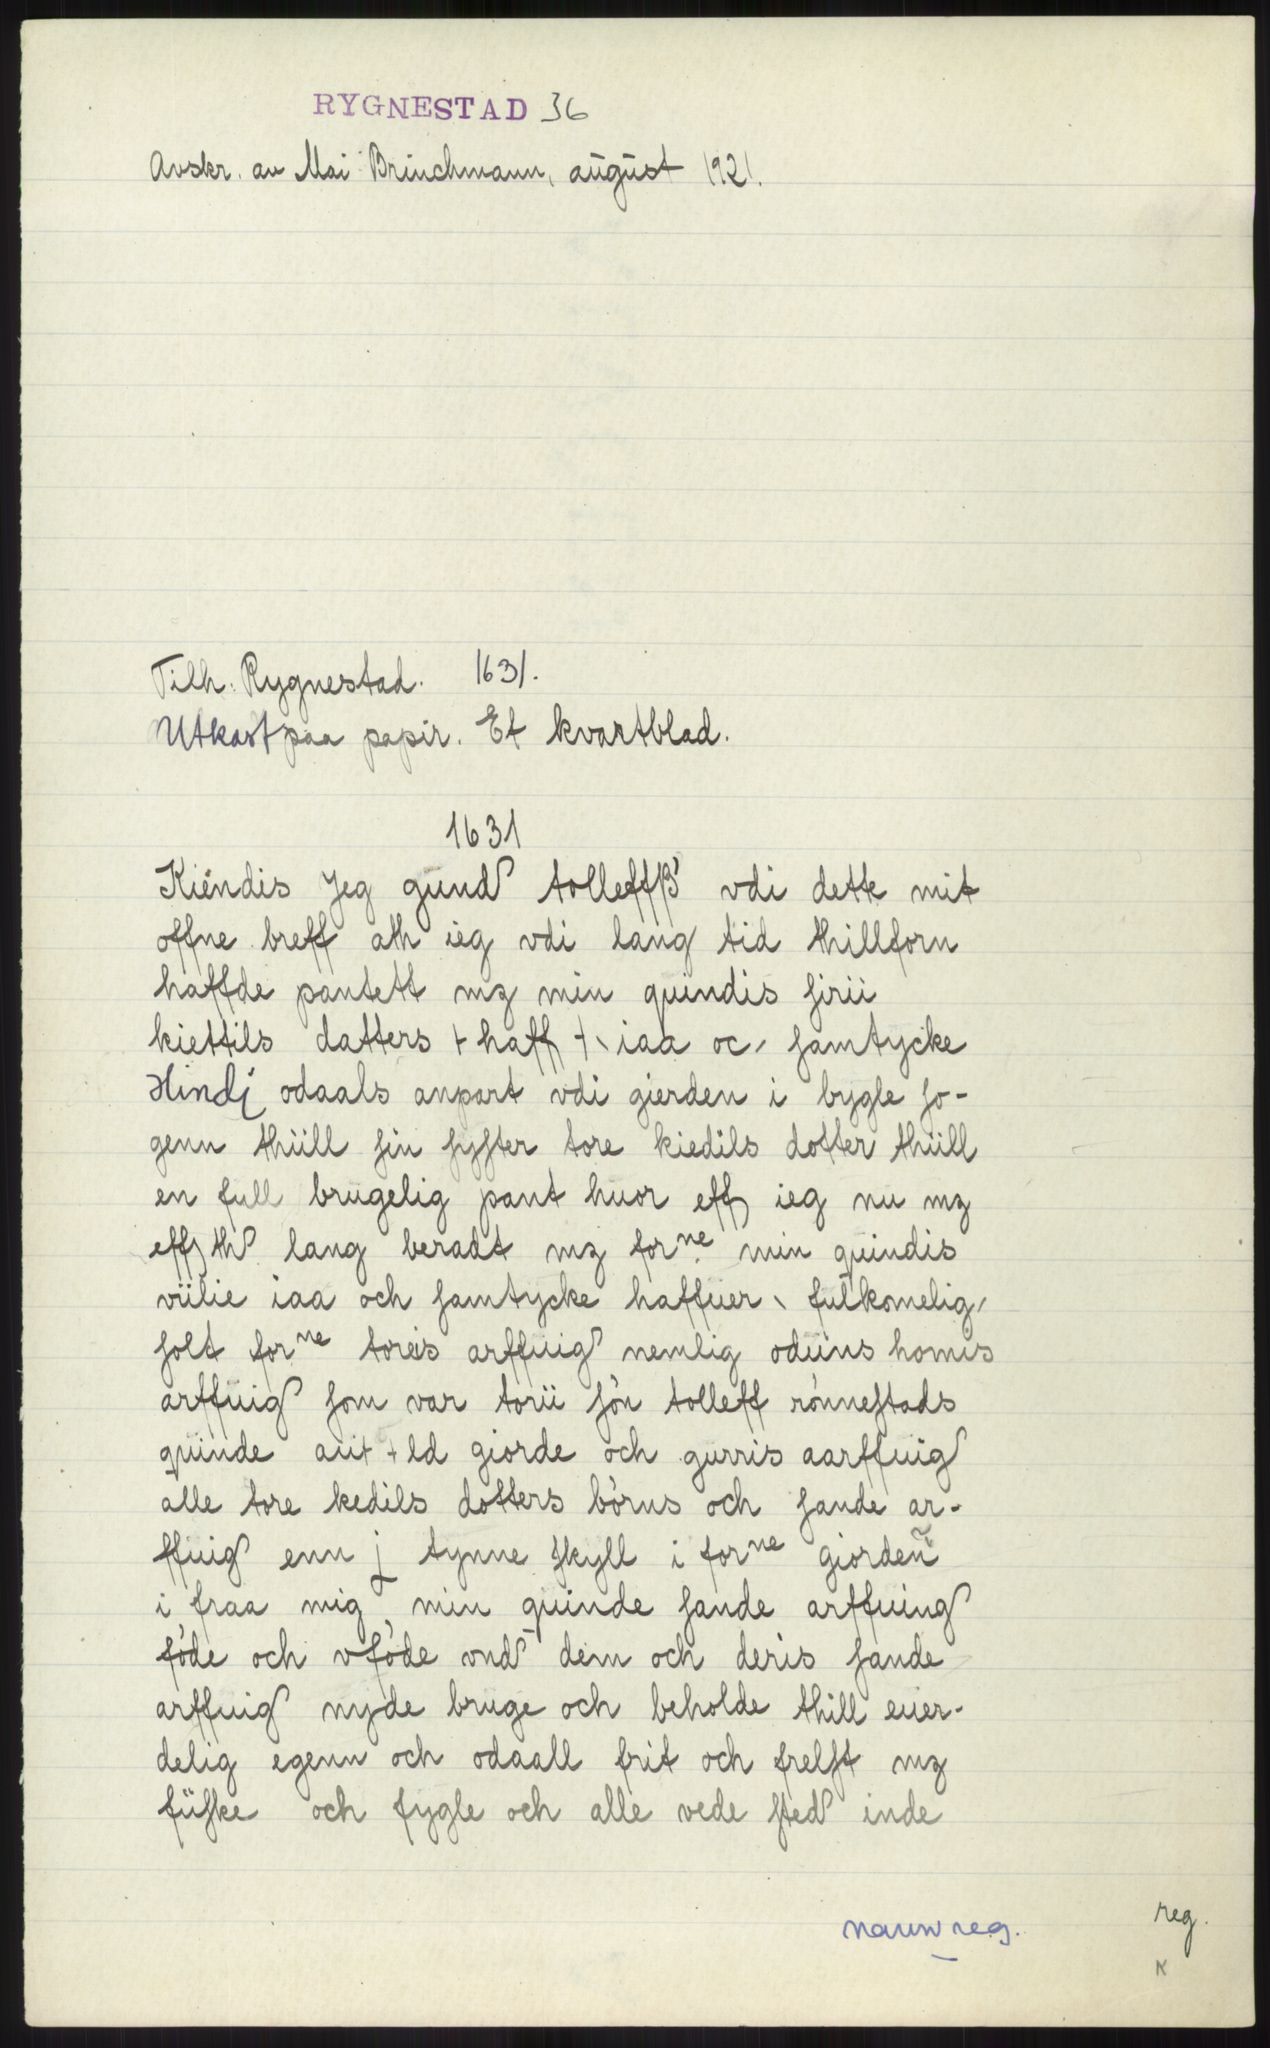 RYGNESTAD 36
Avskr. av Mai Brinchmann, august 1921.
Tilh. Rygnestad. 1631.
Utkast paa papir. Et kvartblad.
1631
Kiéndis Jeg gund tolleffß vdi dette mit
offne breff ath ieg vdi lang tid thillforn
haffde pantett mz min quindis ſirii
kiettils datters + haff + \ iaa oc / ſamtycke
Hindj odaals anpart vdi gierden i bygle ſo-
genn thüll ſin ſyſter tore kiedils dotter thüll
en full brugelig pant huor eff ieg nu mz
eff th lang beradt mz forne min quindis
vülie iaa och ſamtycke haffuer \ fulkomelig /
ſolt forne toreis arffuig nemlig oduins homis
arffuig ſom var torü ſón tolleff rónneſtads
quinde aut + ld giorde och gurris aarffuig
alle tore kedils dotters bórns och ſande ar-
ffuig enn j tynne ſkyll i forne giorden
i fraa mig min quinde ſande arffuing
fóde och vfóde vnd dem och deris ſande
arffuig nyde bruge och beholde thill euer-
delig egenn och odaall frit och frelſt mz
füſke och fygle och alle vede ſted inde
navnreg.
reg.